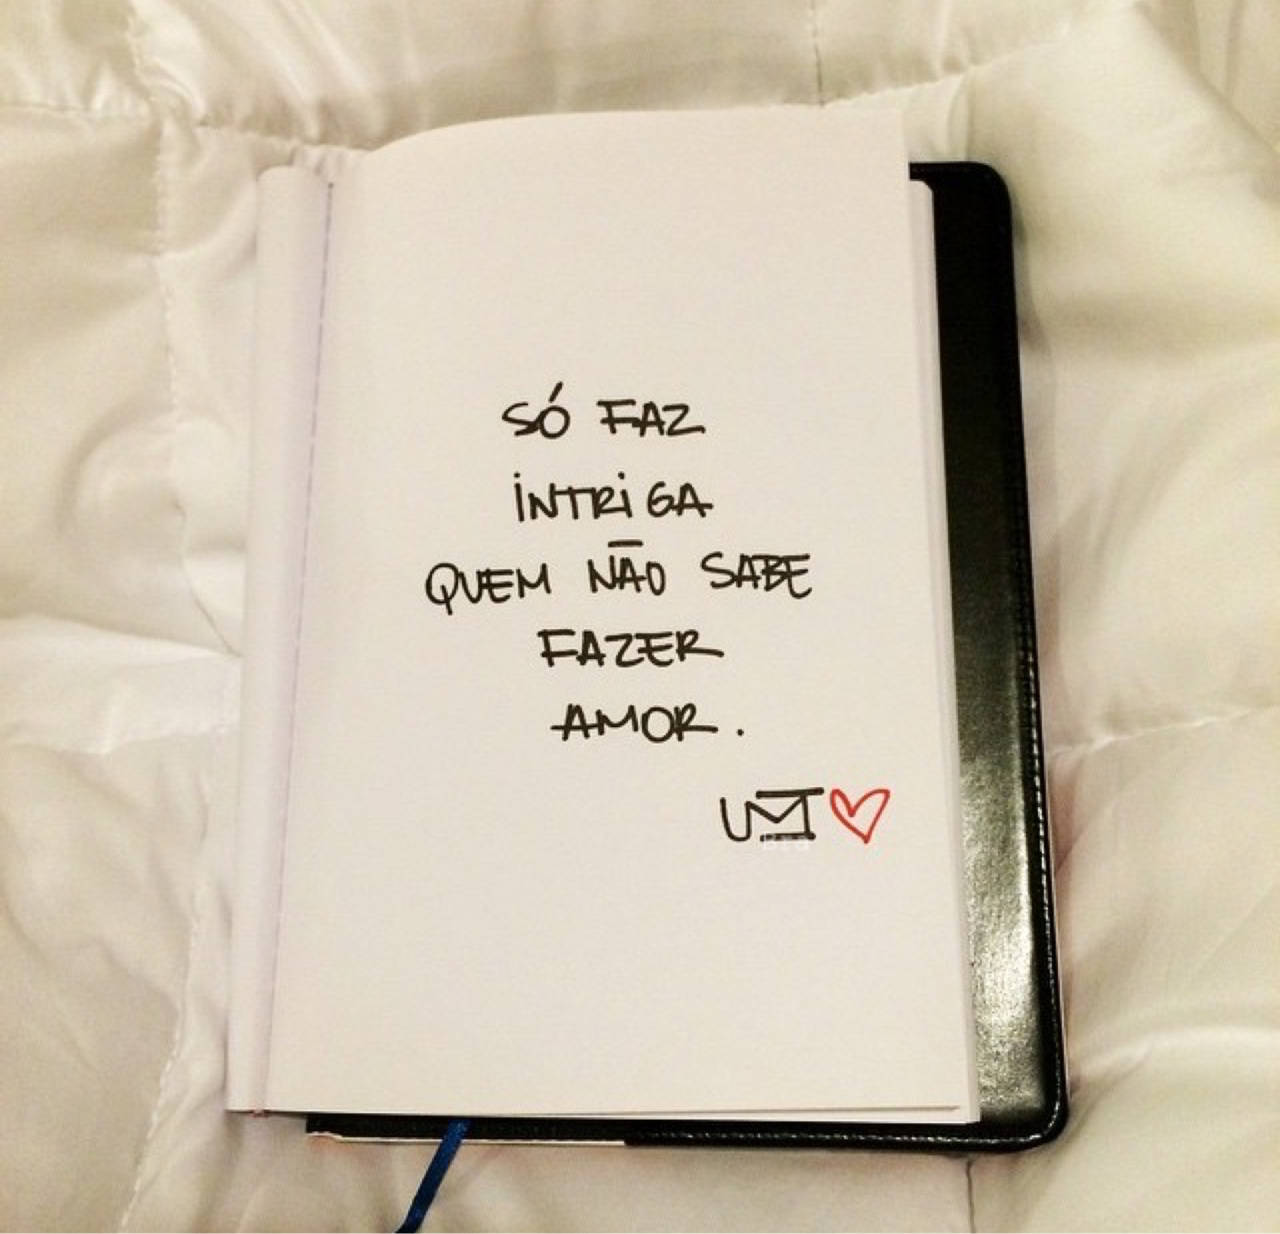 SÓ FAZ
INTRIGA
QUEM NÃO SABE
FAZER
AMOR.